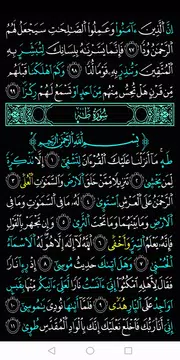 إِنَّ ٱلَّذِينَ ءَامَنُوا۟ وَعَمِلُوا۟ ٱلصَّٰلِحَٰتِ سَيَجْعَلُ لَهُمُ
ٱلرَّحْمَٰنُ وُدًّا فَإِنَّمَا يَسَّرْنَٰهُ بِلِسَانِكَ لِتُبَشِّرَ بِهِ
ٱلْمُتَّقِينَ وَتُنذِرَ بِهِۦ قَوْمًا لُّدًّا وَكَمْ أَهْلَكْنَا قَبْلَهُم
مِّن قَرْنٍ هَلْ تُحِسُّ مِنْهُم مِّنْ أَحَدٍ أَوْ تَسْمَعُ لَهُمْ رِكْزًۢا
سُورَةُ طه
بِسْمِ ٱللَّهِ ٱلرَّحْمَٰنِ ٱلرَّحِيمِ
طه مَآ أَنزَلْنَا عَلَيْكَ ٱلْقُرْءَانَ لِتَشْقَىٰٓ إِلَّا تَذْكِرَةً
لِّمَن يَخْشَىٰ تَنزِيلًا مِّمَّنْ خَلَقَ ٱلْأَرْضَ وَٱلسَّمَٰوَٰتِ ٱلْعُلَى
ٱلرَّحْمَٰنُ عَلَى ٱلْعَرْشِ ٱسْتَوَىٰ لَهُۥ مَا فِى ٱلسَّمَٰوَٰتِ وَمَا فِى
ٱلْأَرْضِ وَمَا بَيْنَهُمَا وَمَا تَحْتَ ٱلثَّرَىٰ وَإِن تَجْهَرْ بِٱلْقَوْلِ
فَإِنَّهُۥ يَعْلَمُ ٱلسِّرَّ وَأَخْفَى ٱللَّهُ لَآ إِلَٰهَ إِلَّا هُوَ لَهُ ٱلْأَسْمَآءُ
ٱلْحُسْنَىٰ وَهَلْ أَتَىٰكَ حَدِيثُ مُوسَىٰٓ إِذْ رَءَا نَارًا
فَقَالَ لِأَهْلِهِ ٱمْكُثُوٓا۟ إِنِّىٓ ءَانَسْتُ نَارًا لَّعَلِّىٓ ءَاتِيكُم مِّنْهَا بِقَبَسٍ
أَوْ أَجِدُ عَلَى ٱلنَّارِ هُدًى فَلَمَّآ أَتَىٰهَا نُودِىَ يَٰمُوسَىٰٓ
إِنِّىٓ أَنَا۠ رَبُّكَ فَٱخْلَعْ نَعْلَيْكَ إِنَّكَ بِٱلْوَادِ ٱلْمُقَدَّسِ طُوًى